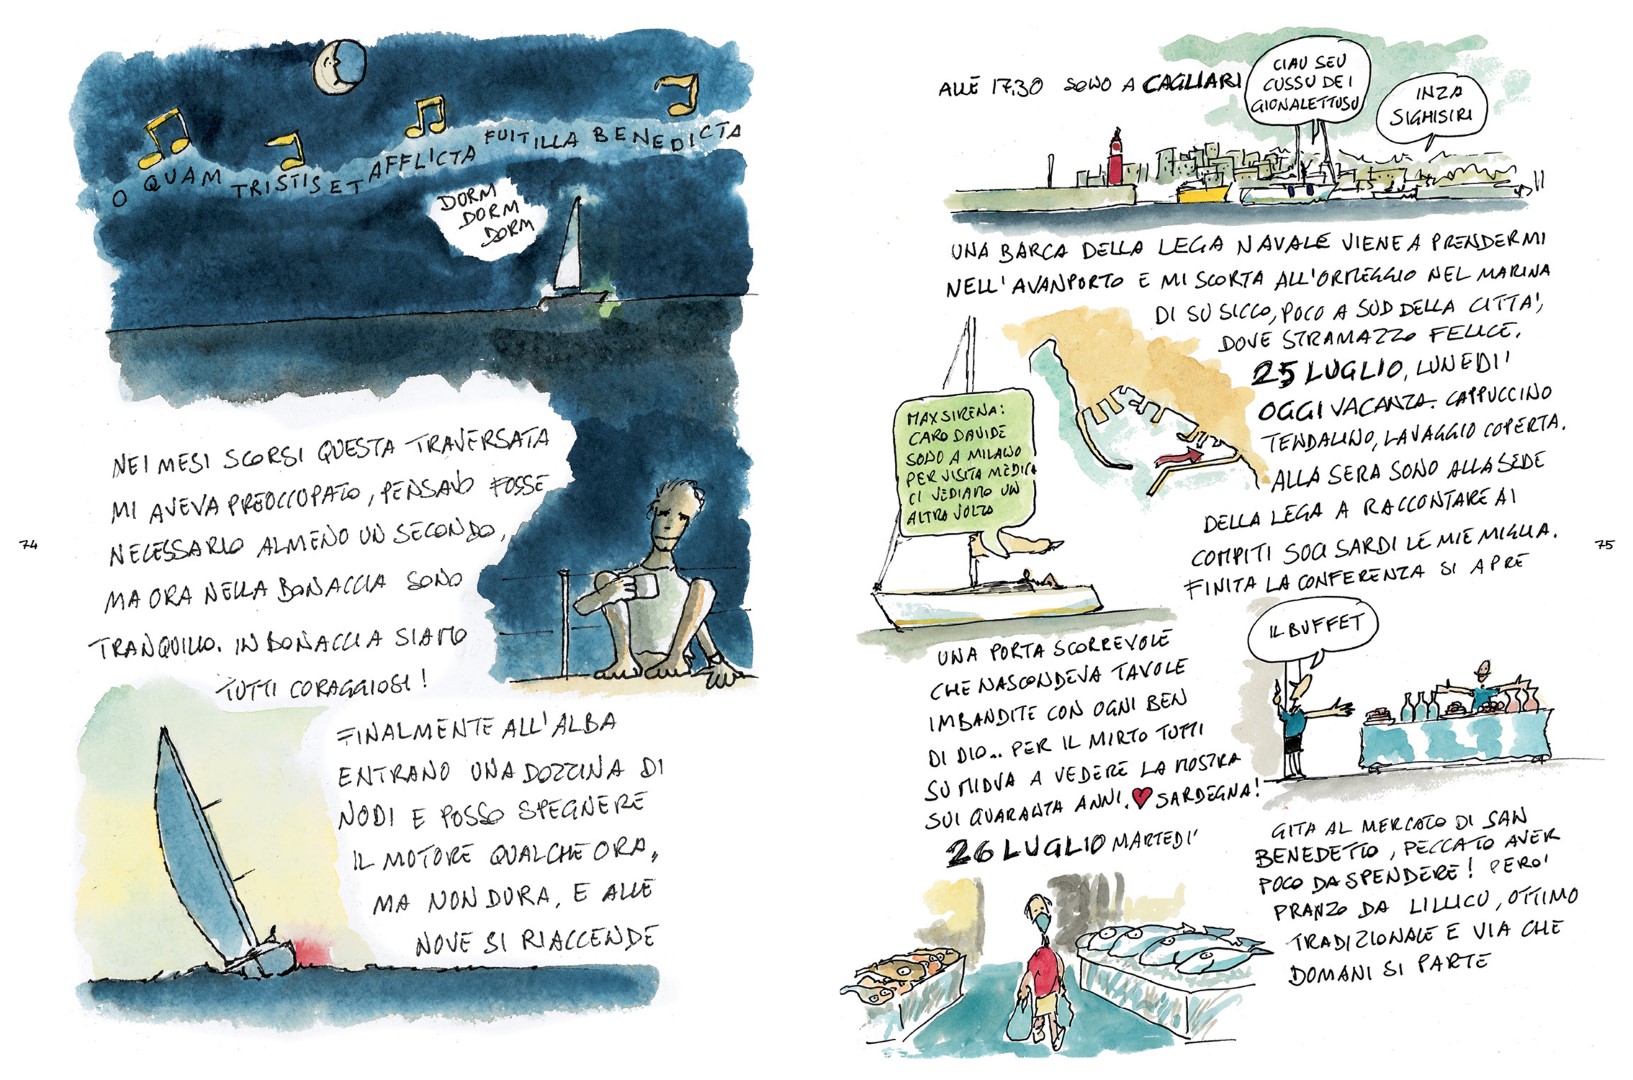 O QUAM TRISTIS ET AFFLICTA FUIT ILLA BENEDICTA
DORM
DORM
DORM
NEI MESI SCORSI QUESTA TRAVERSATA
MI AVEVA PREOCCUPATO, PENSAVO FOSSE
NECESSARIO ALMENO UN SECONDO,
MA ORA NELLA BONACCIA SONO
TRANQUILLO. IN BONACCIA SIAMO
TUTTI CORAGGIOSI!
FINALMENTE ALL'ALBA
ENTRANO UNA DOZZINA DI
NODI E POSSO SPEGNERE
IL MOTORE QUALCHE ORA,
MA NON DURA, E ALLE
NOVE SI RIACCENDE
74
ALLE 17,30 SONO A CAGLIARI
CIAU SEU
CUSSU DE I
GIONALETTUSU
INZA
SIGHISIRI
UNA BARCA DELLA LEGA NAVALE VIENE A PRENDERMI
NELL'AVANPORTO E MI SCORTA ALL'ORMEGGIO NEL MARINA
DI SU SICCO, POCO A SUD DELLA CITTA',
DOVE STRAMAZZO FELICE.
25 LUGLIO, LUNEDI'
OGGI VACANZA. CAPPUCCINO
TENDALINO, LAVAGGIO COPERTA.
ALLA SERA SONO ALLA SEDE
DELLA LEGA A RACCONTARE AI
COMPITI SOCI SARDI LE MIE MIGLIA.
FINITA LA CONFERENZA SI APRE
MAX SIRENA:
CARO DAVIDE
SONO A MILANO
PER VISITA MEDICA
CI VEDIAMO UN
ALTRA VOLTA
UNA PORTA SCORREVOLE
CHE NASCONDEVA TAVOLE
IMBANDITE CON OGNI BEN
DI DIO... PER IL MIRTO TUTTI
SU MIDVA A VEDERE LA MOSTRA
SUI QUARANTA ANNI. ♥ SARDEGNA!
IL BUFFET
26 LUGLIO MARTEDI'
GITA AL MERCATO DI SAN
BENEDETTO, PECCATO AVER
POCO DA SPENDERE! PERO'
PRANZO DA LILLICU, OTTIMO
TRADIZIONALE E VIA CHE
DOMANI SI PARTE
75